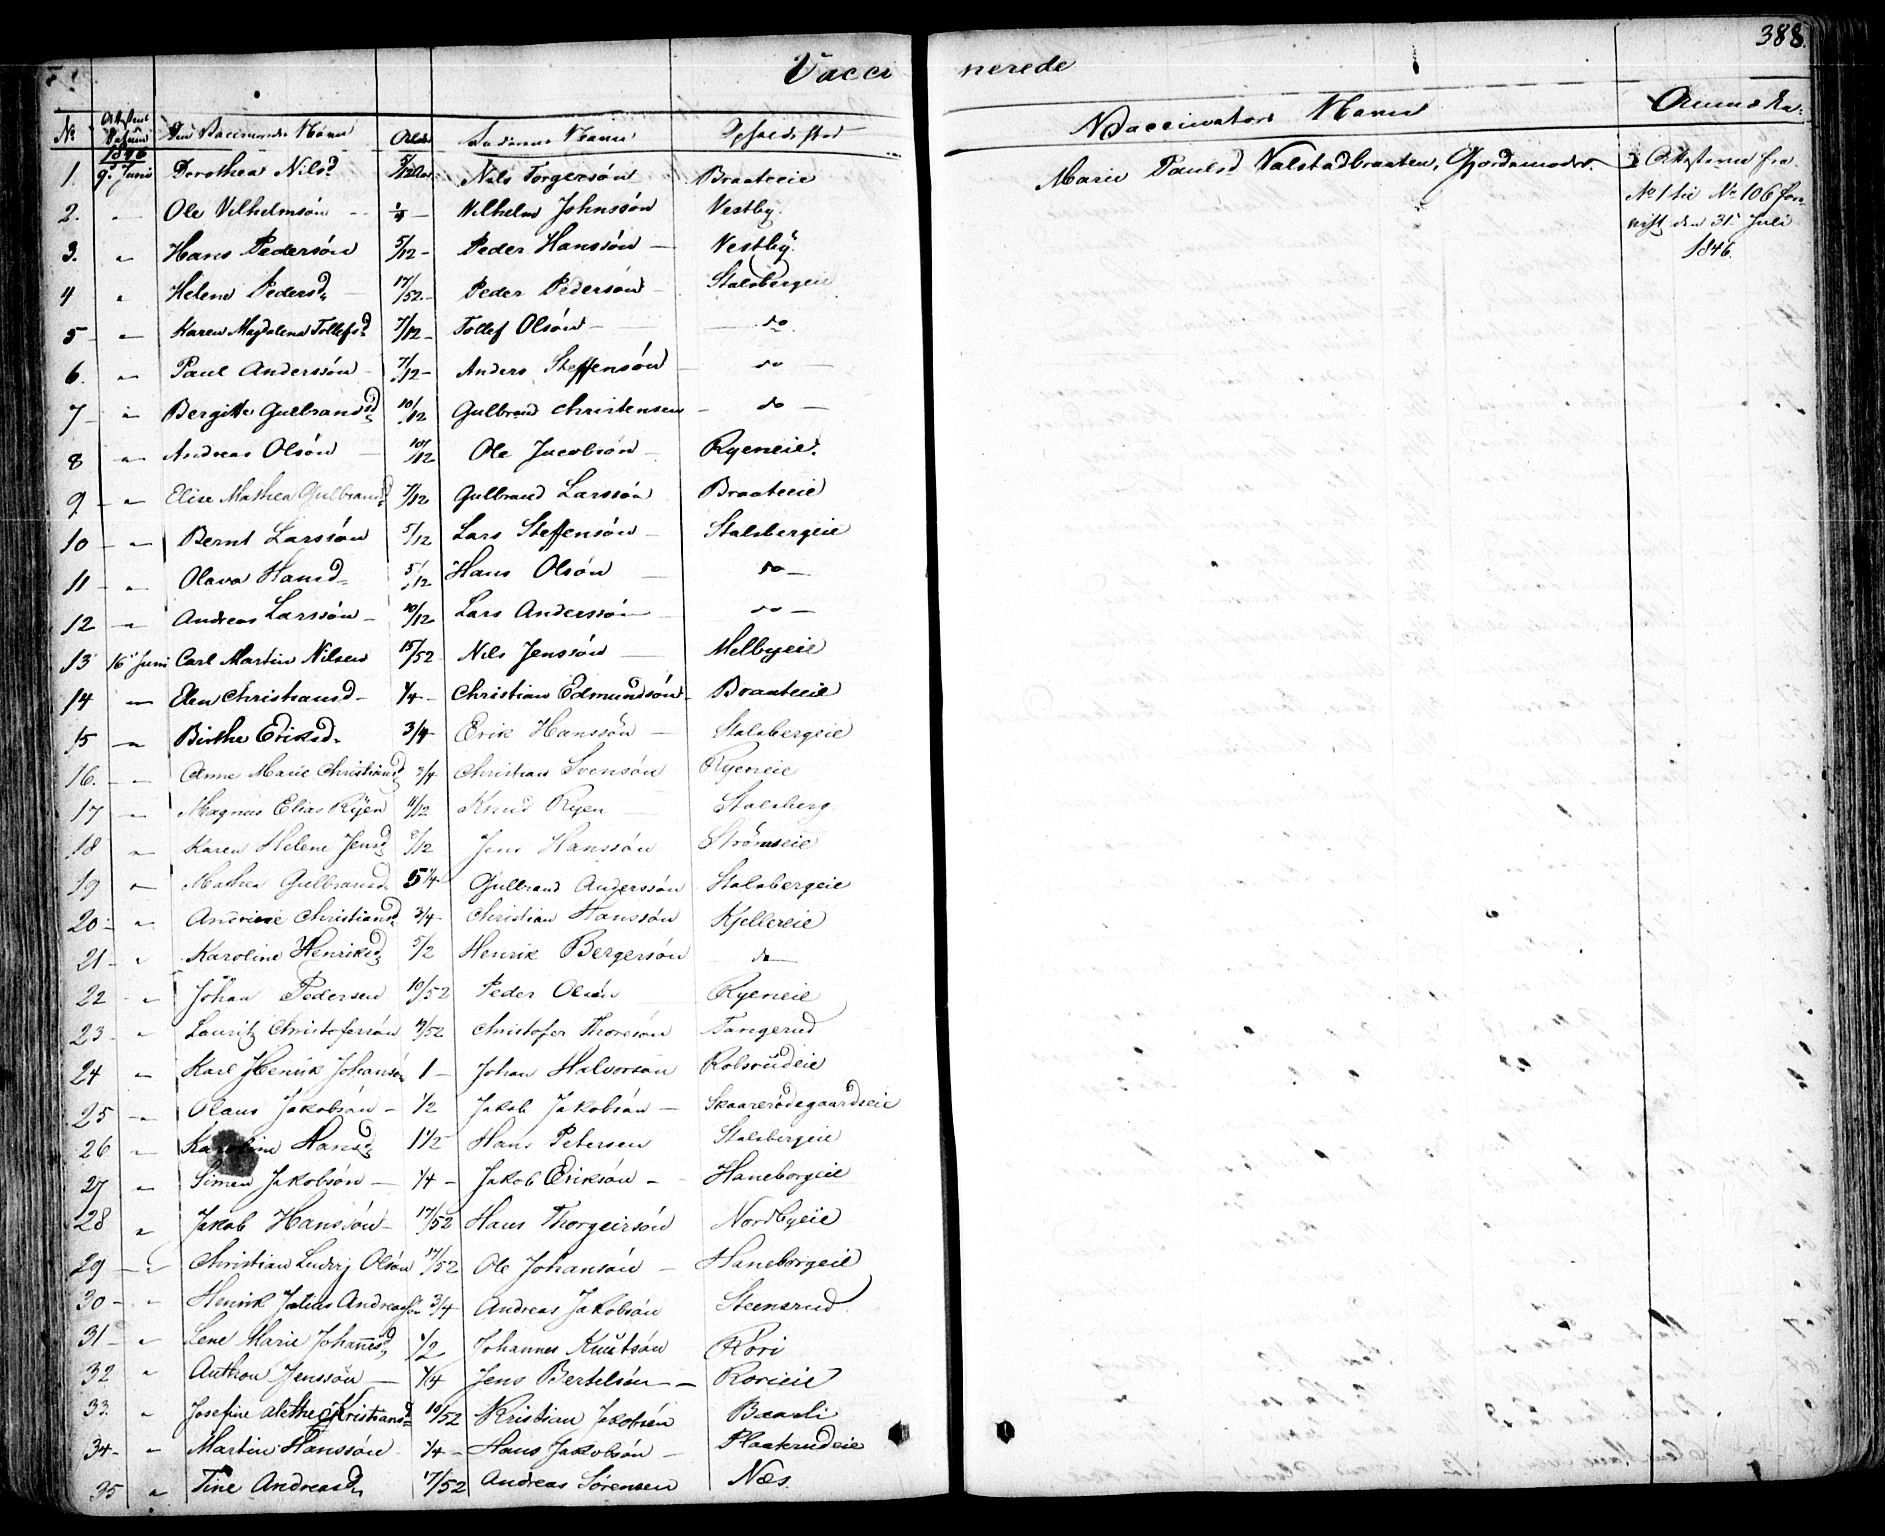 388.
Vacci nerede
No Attestens Datum Den Vaccineredes Navn Alder Faderens Navn Opholdssted Vaccinators Navn Anmærkn.
1846
1. 9d Juni Dorothea Nilsd 5/12 Nils Torgersón Braateeie Marie Paulsd Valstadbraaten, Gjordemoder. Attesterne fra
No 1 til No 106
den 31 Juli
1846.
2. " Ole Vilhelmsón 1/4 Vilhelm Johnssón Vestby.
3. " Hans Pedersón 5/12 Peder Hanssón Vestby.
4 " Helene Pedersd. 17/52 Peder Pedersón Stalsbergeie
5 " Karen Magdalena Tollefsd. 7/12 Tollef Olsón do.
6. " Paul Anderssón 7/12 Anders Steffensón do
7 " Bergitte Gulbrandsd. 10/12 Gulbrand Christensen do
8 " Andreas Olsón 10/12 Ole Jacobsón Ryeneie.
9 " Elise Mathea Gulbrandsd. 7/12 Gulbrand Larssón Braateeie
10 " Bernt Larssón 5/12 Lars Steffensón Stalsbergeie
11 " Olava Hansd. 5/12 Hans Olsón do
12 " Andreas Larssón 10/12 Lars Anderssón do
13 16d Juni Carl Martin Nilsen 15/52 Nils Jenssón Melbyeie
14 " Elen Christiansd 1/4 Christian Edmundsón Braateeie
15 " Birthe Eriksd. 3/4 Erik Hanssón Stalsbergeie
16. " Anne Marie Christiansd. 3/4 Christian Svensón Ryeneie
17 " Magnus Elias Ryen 11/12 Knud Ryen Stalsberg.
18 " Karen Helene Jensd. /12 Jens Hanssón Strömseie
19 " Mathea Gulbransd. 5 1/4 Gulbrand Anderssón Stalsbergeie
20 " Andrine Christiansd. 3/4 Christian Hanssón Kjellereie
21 " Karoline Henriksd. 5/2 Henrik Bergersón do
22 " Johan Pedersen 10/52 Peder Olsen Ryeneie
23 " Lauritz Christofersón 9/52 Christofer Thoresón Tangerud
24 " Karl Henrik Johansón 1 Johan Halvorsón Robsrudeie
25 " Olaus Jakobsón 1/2 Jakob Jakobsón Skaarerödegaardseie
26 " Karoline Hansd. 1 1/2 Hans Petersen Stalsbergeie
27 " Simen Jakobsón 1/4 Jakob Eriksón Haneborgeie
28 " Jakob Hanssón 17/52 Hans Thorgeirsón Nordbyeie
29 " Christian Ludvig Olsón 17/52 Ole Johansón Haneborgeie
30 " Henrik Julius Andreassön 3/4 Andreas Jakobsón Steensrud.
31 " Lene Marie Johannesd. 1/2 Johannes Knutsón Röri
32 " Anthon Jenssön 1/4 Jens Bertelsön Rorieie
33. " Josefine Alethe Kristiansd. 10/52 Kristian Jakobsen Baarli
34 " Martin Hanssön 1/4 Hans Jakobsön Plaaterudeie
35 " Tine Andreasd. 17/52 Andreas Sörensen Næs.